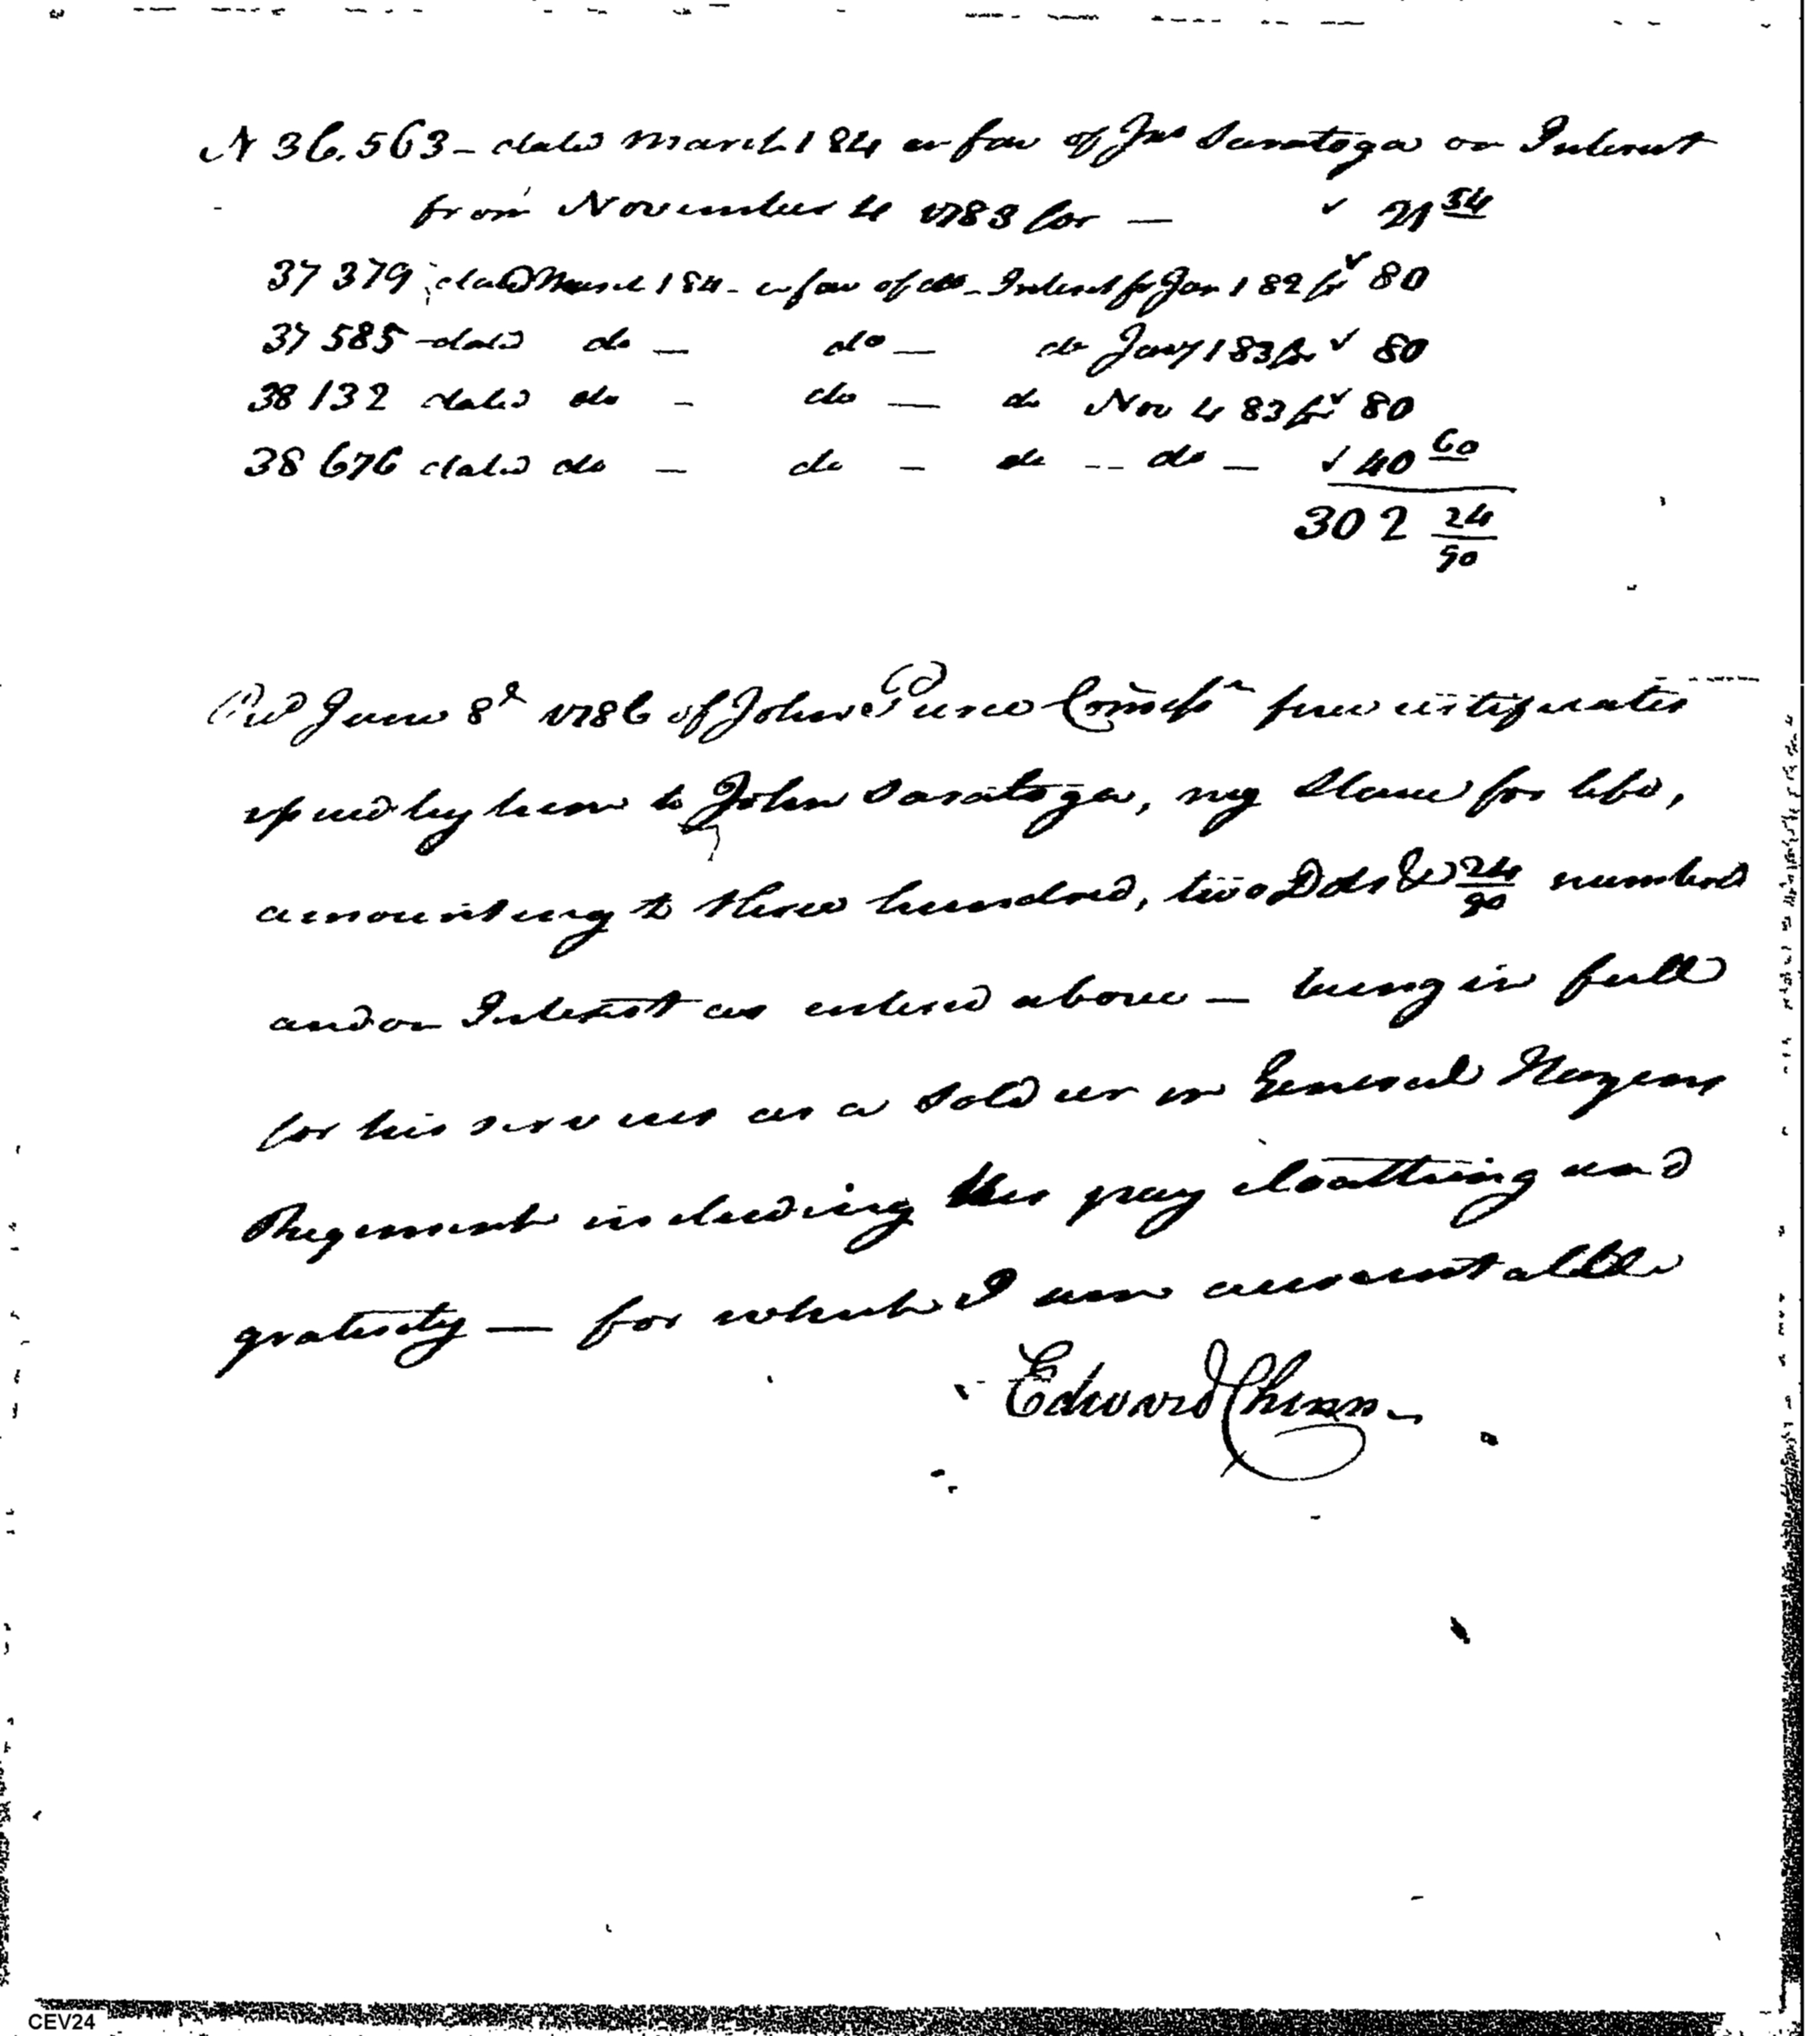 N 36.563 – dated March 1 84 in fav of Jno Saratoga on Interest
from November 4 1783 for — ✓ 21 54
37 379 dated March 1 84 – in fav of do – Interest fr Jan 1 82 fr ✓ 80
37 585 – dated do — do — do Jany 1 83 fr ✓ 80
38 132 dated do – do — do Nov 4 83 fr ✓ 80
38 676 dated do – do – do -- do — ✓ 40 60
302 24/90
Recd June 8th 1786 of John Pierce Comissr five certificates
issued by him to John Saratoga, my Slave for life,
amounting to three hundred, two Dols & 24/90 numbered
and on Interest as entered above — being in full
for his services as a Soldier in General Hazens
Regement including his pay cloathing and
gratuity — for which I am accountable
Edward Chinn
CEV24